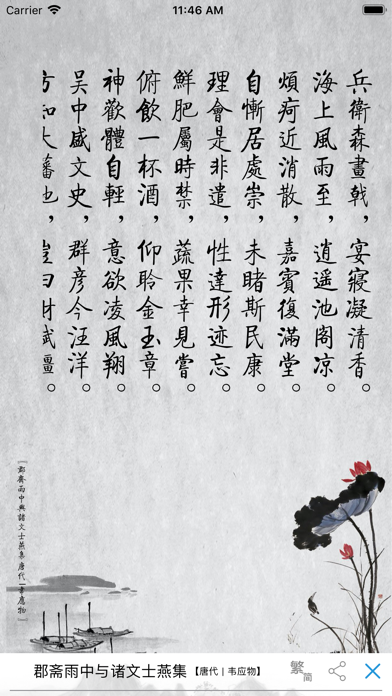 Carrier
11:46 AM
兵衛森畫戟，宴寢凝清香。
海上風雨至，逍遥池閣凉。
煩疴近消散，嘉賓復滿堂。
自慚居處崇，未睹斯民康。
理會是非遣，性達形迹忘。
鮮肥屬時禁，蔬果幸見嘗。
俯飲一杯酒，仰聆金玉章。
神歡體自輕，意欲凌風翔。
吴中盛文史，群彦今汪洋。
『郡齋雨中與諸文士燕集 唐代—韋應物』
郡斋雨中与诸文士燕集【唐代 | 韦应物】
繁简